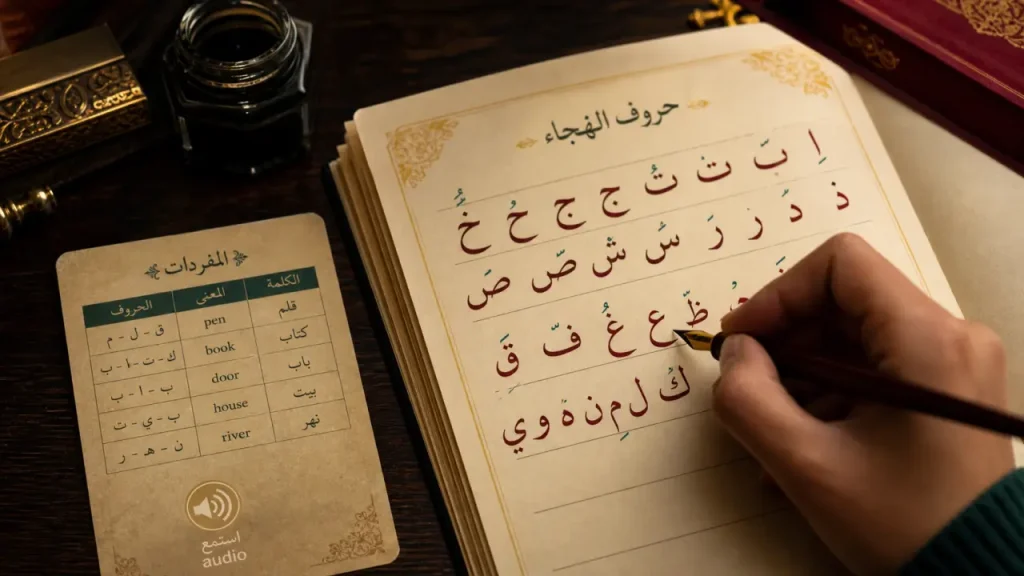 حروف الهجاء
اِ بَّ ت ثُ ج ج حُ خُّ
ذ دَ ز رَ سُ ش صَ صَ
ظّ ع غُ فّ قَ
كُ ل مِ ن ة و ي
المفردات
الكلمة المعنى الحروف
قلم pen ق - ل - م
كتاب book ك - ت - ا - ب
باب door ب - ا - ب
بيت house ب - ي - ت
نهر river ن - هـ - ر
استمع
audio